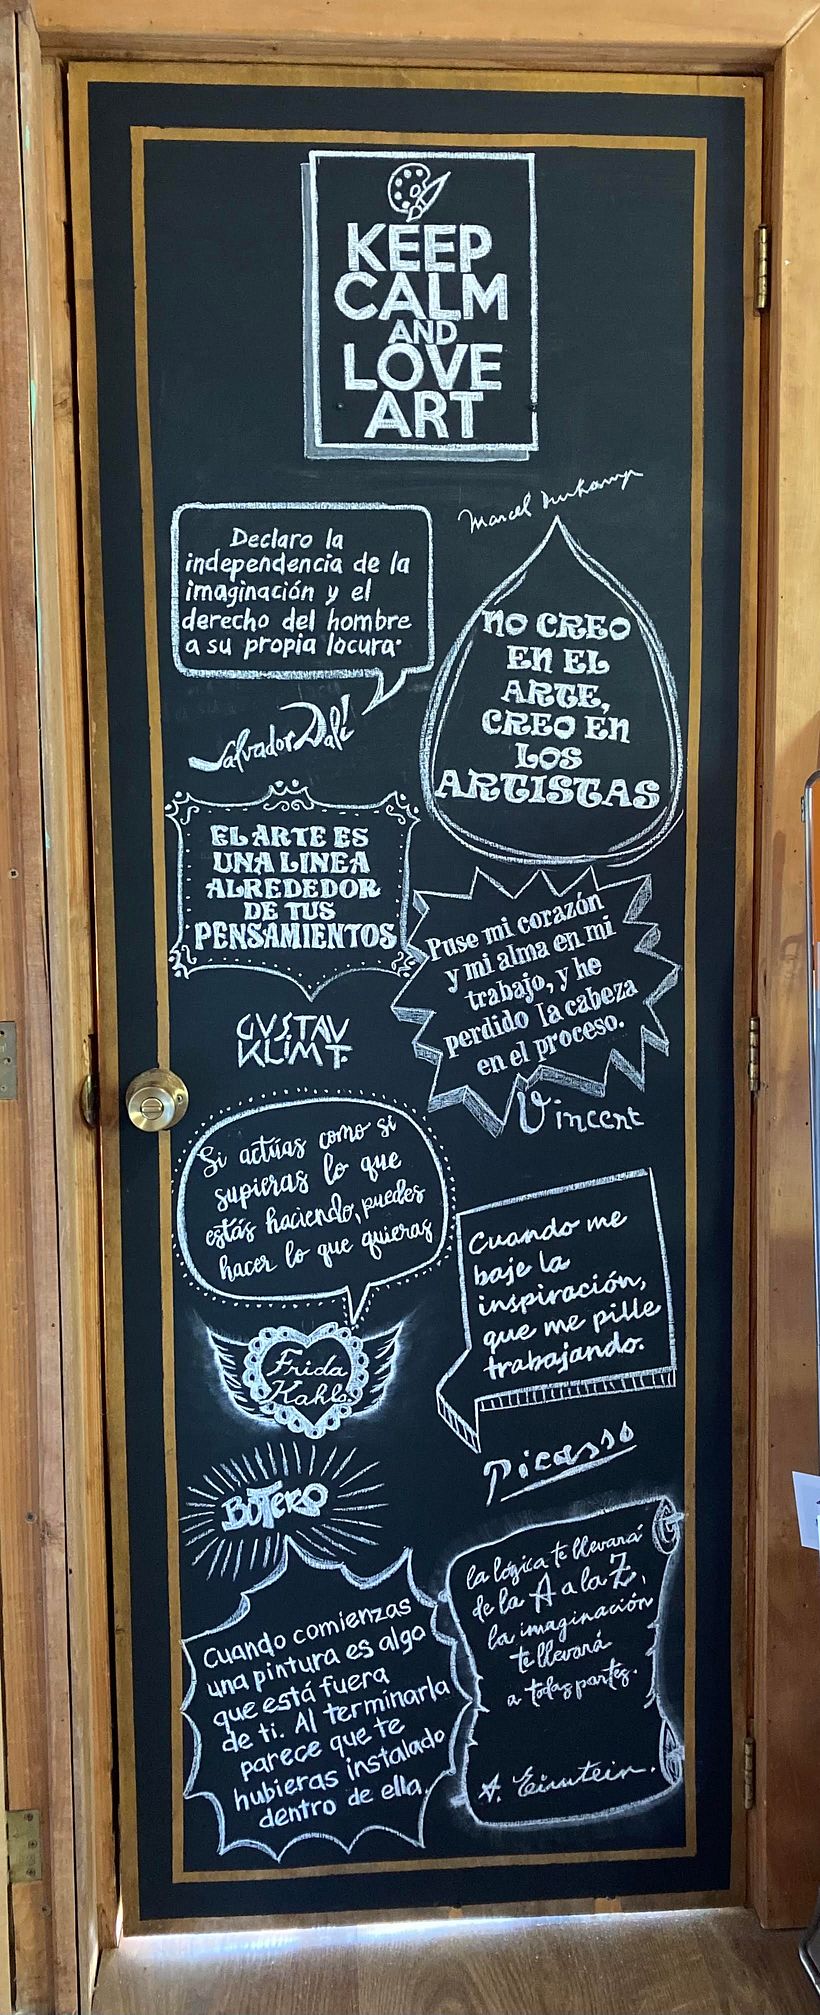 KEEP
CALM
AND
LOVE
ART
Declaro la
independencia de la
imaginación y el
derecho del hombre
a su propia locura.
Salvador Dalí
Marcel Duchamp
NO CREO
EN EL
ARTE,
CREO EN
LOS
ARTISTAS
EL ARTE ES
UNA LINEA
ALREDEDOR
DE TUS
PENSAMIENTOS
GUSTAV
KLIMT.
Puse mi corazón
y mi alma en mi
trabajo, y he
perdido la cabeza
en el proceso.
Vincent
Si actúas como si
supieras lo que
estás haciendo, puedes
hacer lo que quieras
Frida
Kahlo
Cuando me
baje la
inspiración,
que me pille
trabajando.
Picasso
BOTERO
Cuando comienzas
una pintura es algo
que está fuera
de ti. Al terminarla
parece que te
hubieras instalado
dentro de ella.
la lógica te llevará
de la A a la Z,
la imaginación
te llevará
a todas partes.
A. Einstein.